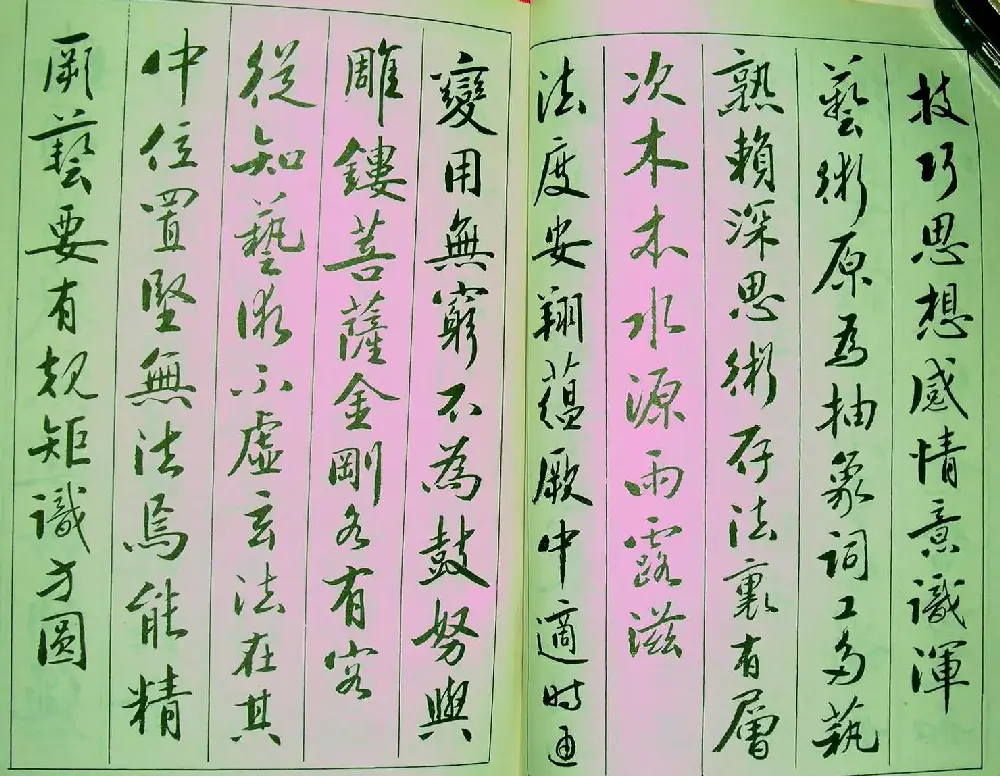 技巧思想感情意識渾
藝術原为抽象詞工多藝
熟賴深思術存法裏有層
次木本水源雨露滋
法度安翔蘊厥中適时通
變用無窮不為鼓努與
雕鏤菩薩金剛各有容
從知藝術不虛玄法在其
中位置堅無法焉能精
厥藝要有規矩識方圓